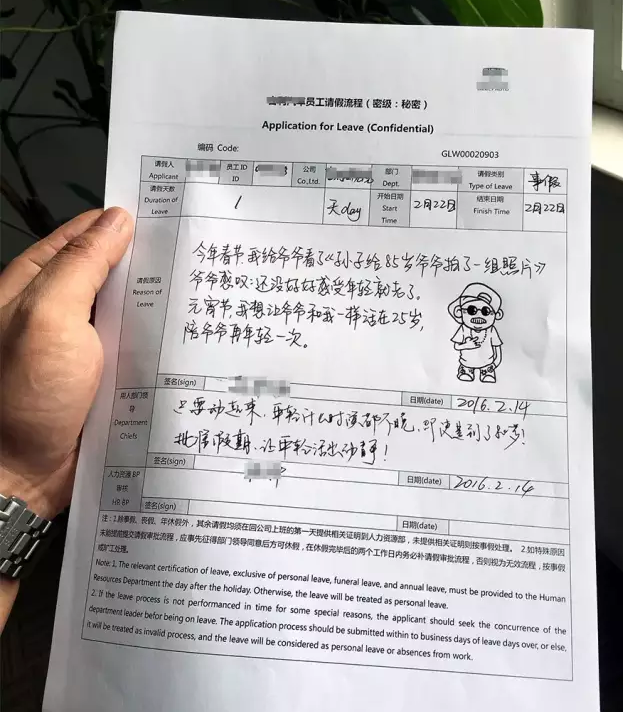 员工请假流程（密级：秘密）
Application for Leave (Confidential)
编码 Code: GLW00020903
请假人 Applicant 员工ID ID 公司 Co.,Ltd. 部门 Dept. 请假类别 Type of Leave 事假
请假天数 Duration of Leave 1 天day 开始日期 Start Time 2月22日 结束日期 Finish Time 2月22日
请假原因 Reason of Leave
今年春节我给爷爷看了《孙子给85岁爷爷拍了一组照片》
爷爷感叹:还没好好感受年轻就老了。
元宵节,我想让爷爷和我一样活在25岁,
陪爷爷再年轻一次。
签名(sign) 日期(date) 2016.2.14
用人部门领导 Department Chiefs
只要动起来,年轻什么时候都不晚,即使是到了80岁!
批准假期,让年轻活出动静!
签名(sign) 日期(date) 2016.2.14
人力资源BP审核 HR BP
签名(sign) 日期(date)
注：1.除事假、丧假、年休假外，其余请假均须在回公司上班的第一天提供相关证明到人力资源部，未提供相关证明则按事假处理。 2.如特殊原因
未能提前提交请假审批流程，应事先征得部门领导同意后方可休假，在休假完毕后的两个工作日内务必补请假审批流程，否则视为无效流程，按事假
或旷工处理。
Note: 1. The relevant certification of leave, exclusive of personal leave, funeral leave, and annual leave, must be provided to the Human
Resources Department the day after the holiday. Otherwise, the leave will be treated as personal leave.
2. If the leave process is not performanced in time for some special reasons, the applicant should seek the concurrence of the
department leader befor being on leave. The application process should be submitted within to business days of leave days over, or else,
it will be treated as invalid process, and the leave will be considered as personal leave or absences from work.